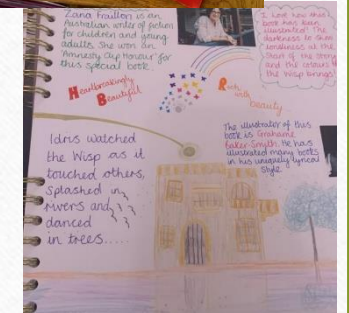 Zana Fraillon is an
Australian writer of fiction
for children and young
adults. She won an
Amnesty CILIP Honour for
this special book.
I love how this
book has been
illustrated! The
darkness to show
loneliness at the
start of the story
and the colours
the Wisp brings!
Heartbreakingly
Beautiful
Rich
with
beauty...
The illustrator of this
book is Grahame
Baker-Smith. He has
illustrated many books
in his uniquely lyrical
style.
Idris watched
the Wisp as it
touched others,
splashed in
rivers and
danced
in trees.....